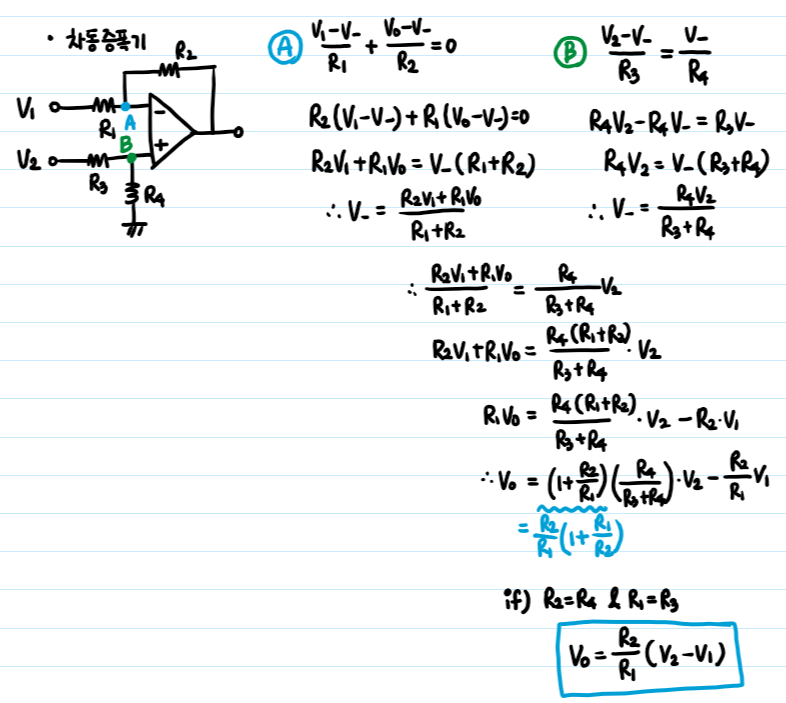 • 차동증폭기
R₂
V₁
R₁
A
−
B
+
V₂
R₃
R₄
Ⓐ (V₁-V₋)/R₁ + (V₀-V₋)/R₂ = 0
R₂(V₁-V₋)+R₁(V₀-V₋)=0
R₂V₁+R₁V₀ = V₋(R₁+R₂)
∴ V₋ = (R₂V₁+R₁V₀)/(R₁+R₂)
Ⓑ (V₂-V₋)/R₃ = V₋/R₄
R₄V₂-R₄V₋ = R₃V₋
R₄V₂ = V₋(R₃+R₄)
∴ V₋ = R₄V₂/(R₃+R₄)
∴ (R₂V₁+R₁V₀)/(R₁+R₂) = R₄/(R₃+R₄) V₂
R₂V₁+R₁V₀ = R₄(R₁+R₂)/(R₃+R₄) · V₂
R₁V₀ = R₄(R₁+R₂)/(R₃+R₄) · V₂ - R₂·V₁
∴ V₀ = (1+R₂/R₁)(R₄/(R₃+R₄))·V₂ - R₂/R₁ V₁
= R₂/R₁(1+R₁/R₂)
if) R₂=R₄ & R₁=R₃
V₀ = R₂/R₁ (V₂-V₁)